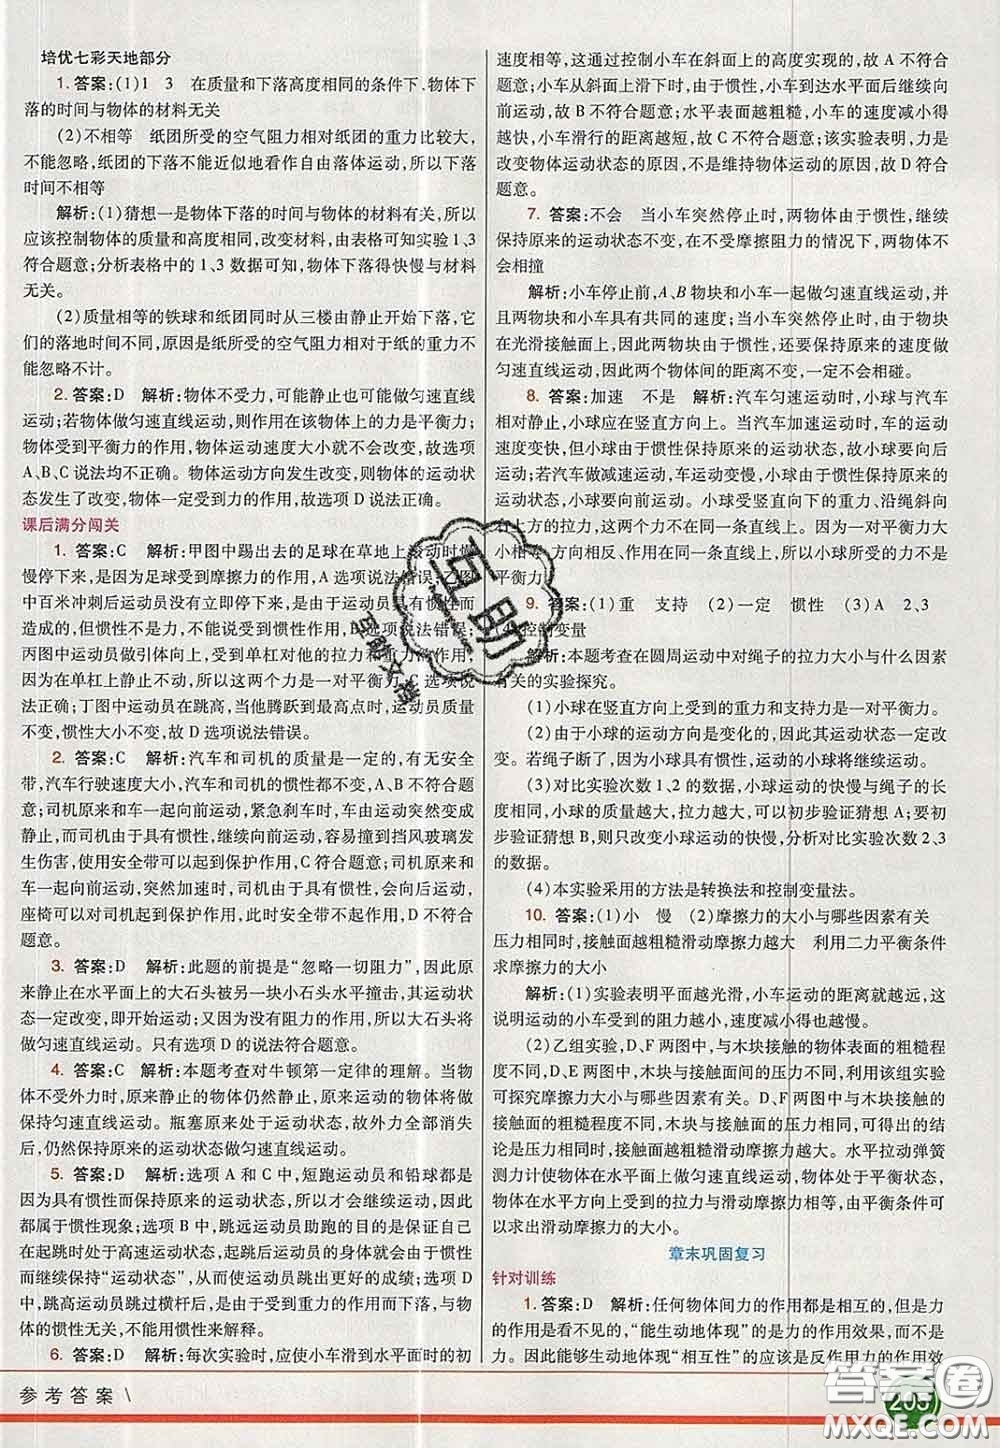 培优七彩天地部分
1. 答案:(1)1　3　在质量和下落高度相同的条件下,物体下
落的时间与物体的材料无关
(2)不相等　纸团所受的空气阻力相对纸团的重力比较大,
不能忽略,纸团的下落不能近似地看作自由落体运动,所以下落
时间不相等
解析:(1)猜想一是物体下落的时间与物体的材料有关,所以
应该控制物体的质量和高度相同,改变材料,由表格可知实验1、3
符合题意;分析表格中的1、3数据可知,物体下落得快慢与材料
无关。
(2)质量相等的铁球和纸团同时从三楼由静止开始下落,它
们的落地时间不同,原因是纸所受的空气阻力相对于纸的重力不
能忽略不计。
2. 答案:D　解析:物体不受力,可能静止也可能做匀速直线
运动;若物体做匀速直线运动,则作用在该物体上的力是平衡力;
物体受到平衡力的作用,物体运动速度大小就不会改变,故选项
A、B、C说法均不正确。物体运动方向发生改变,则物体的运动状
态发生了改变,物体一定受到力的作用,故选项D说法正确。
课后满分闯关
1. 答案:C　解析:甲图中踢出去的足球在草地上滚动时会
慢慢停下来,是因为足球受到摩擦力的作用,A选项说法错误;乙图
中百米冲刺后运动员没有立即停下来,是由于运动员具有惯性而
造成的,但惯性不是力,不能说受到惯性的作用,B选项说法错误;
丙图中运动员做引体向上时,受到单杠对他的拉力和重力的作用,
在单杠上静止不动,所以这两个力是一对平衡力,C选项说
法正确;丁图中运动员在跳高,当他腾跃到最高点时,运动员质量
不变,惯性大小不变,故D选项说法错误。
2. 答案:C　解析:汽车和司机的质量是一定的,有无安全
带,汽车行驶速度大小,汽车和司机的惯性都不变,A、B不符合题
意;司机原来和车一起向前运动,紧急刹车时,车由运动突然变成
静止,而司机由于具有惯性,继续向前运动,容易撞到挡风玻璃发
生伤害,使用安全带可以起到保护作用,C符合题意;司机原来和
车一起向前运动,突然加速时,司机由于具有惯性,会向后运动,
座椅可以对司机起到保护作用,此时安全带不起作用,D不符合
题意。
3. 答案:D　解析:此题的前提是“忽略一切阻力”,因此原来
静止在水平面上的大石头被另一块小石头水平撞击,其运动状
态一定改变,开始运动;又因为没有阻力的作用,所以大石头将
做匀速直线运动。只有选项D的说法符合题意。
4. 答案:C　解析:本题考查对牛顿第一定律的理解。当物
体不受外力时,原来静止的物体仍然静止,原来运动的物体将做
匀速直线运动。瓶塞原来处于运动状态,故外力全部消失
后,仍然保持原来的运动状态做匀速直线运动。
5. 答案:D　解析:选项A和C中,短跑运动员和铅球都是
因为具有惯性而保持原来的运动状态,所以才会继续运动,因此
都属于惯性现象;选项B中,跳远运动员助跑的目的是保证自己
在起跳时处于高速运动状态,起跳后运动员的身体就会由于惯性
而继续保持“运动状态”,从而使运动员跳出更好的成绩;选项D
中,跳高运动员跳过横杆后,是由于受到重力的作用而落下,与物
体的惯性无关,不能用惯性来解释。
6. 答案:D　解析:每次实验时,应使小车滑到水平面时的初
速度相等,这通过控制小车在斜面上的高度来实现,故A不符合
题意;小车从斜面上滑下时,由于惯性,小车到达水平面后继续向
前运动,故B不符合题意;水平表面越粗糙,小车的速度减小得
越快,小车滑行的距离越短,故C不符合题意;该实验表明,力是
改变物体运动状态的原因,不是维持物体运动的原因,故D符合
题意。
7. 答案:不会　当小车突然停止时,两物体由于惯性,继续
保持原来的运动状态不变,在不受摩擦阻力的情况下,两物体不
会相撞
解析:小车停止前,A、B物块和小车一起做匀速直线运动,并
且两物块与小车具有共同的速度;当小车突然停止时,由于物块
在光滑接触面上,因此两物块由于惯性,还要保持原来的速度做
匀速直线运动,因此两个物体间的距离不变,一定不会相碰。
8. 答案:加速　不是　解析:汽车匀速运动时,小球与汽车
相对静止,小球应在竖直方向上。当汽车加速运动时,车的运动
速度变快,但小球由于惯性保持原来的运动状态,故小球要向后
运动;若汽车做减速运动,车运动变慢,小球由于惯性保持原来的
运动状态,小球要向前运动。小球受竖直向下的重力、沿绳斜向
右上方的拉力,这两个力不在同一条直线上。由于一对平衡力大
小相等、方向相反、作用在同一直线上,所以小球所受的力不是
平衡力。
9. 答案:(1)重　支持　(2)一定　惯性　(3)A　2、3
(4)控制变量
解析:本题考查在圆周运动中对绳子的拉力大小与什么因素
有关的实验探究。
(1)小球在竖直方向上受到的重力和支持力是一对平衡力。
(2)由于小球的运动方向是变化的,因此其运动状态一定改
变。若绳子突然断开,小球由于具有惯性,运动的小球将继续运动。
(3)对比实验次数1、2的数据,小球运动的快慢与绳子的长
度相同,小球的质量越大,拉力越大,可以初步验证猜想A;要初
步验证猜想B,则只改变小球运动的快慢,分析对比实验次数2、3
的数据。
(4)本实验采用的方法是转换法和控制变量法。
10. 答案:(1)小　慢　(2)摩擦力的大小与哪些因素有关
压力相同时,接触面越粗糙滑动摩擦力越大　利用二力平衡条件
求摩擦力的大小
解析:(1)实验表明平面越光滑,小车运动的距离就越远,这
说明运动的小车受到的阻力越小,速度减小得也越慢。
(2)乙组实验,D、F两图中,与木块接触的物体表面的粗糙程
度不同,D、E两图中,木块与接触面间的压力不同,利用该组实验
可探究摩擦力的大小与哪些因素有关。D、F两图中,木块与木板
接触的接触面的粗糙程度不同,木块与接触面的压力相同,得出的结
论是压力相同时,接触面越粗糙滑动摩擦力越大。水平拉动弹簧
测力计使物体在水平面上做匀速直线运动,物体处于平衡状态,
物体在水平方向上所受的拉力与滑动摩擦力相等,由平衡条件可
以求出滑动摩擦力的大小。
章末巩固复习
针对训练
1. 答案:D　解析:任何物体间力的作用都是相互的,但是力
的作用是看不见的,“能生动地体现”的是力的作用效果,而不是
力。因此能够生动地体现“相互性”的应该是反作用力的作用效
参考答案 \
205
互助
答案圈
MXQE.COM